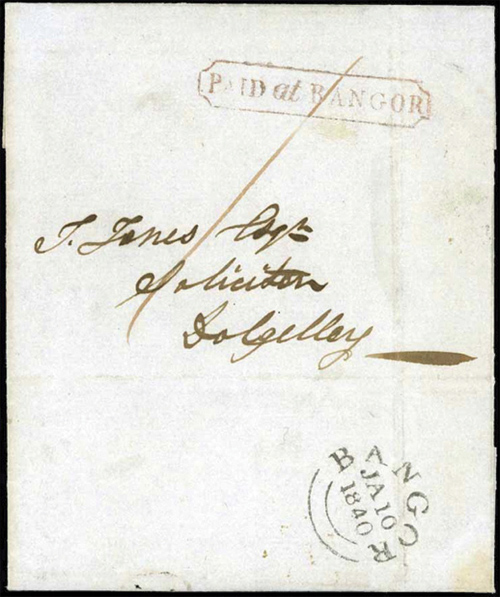 PAID at BANGOR
J. Jones Esqre
Solicitor
Dolgelley
BANGOR
JA 10
1840